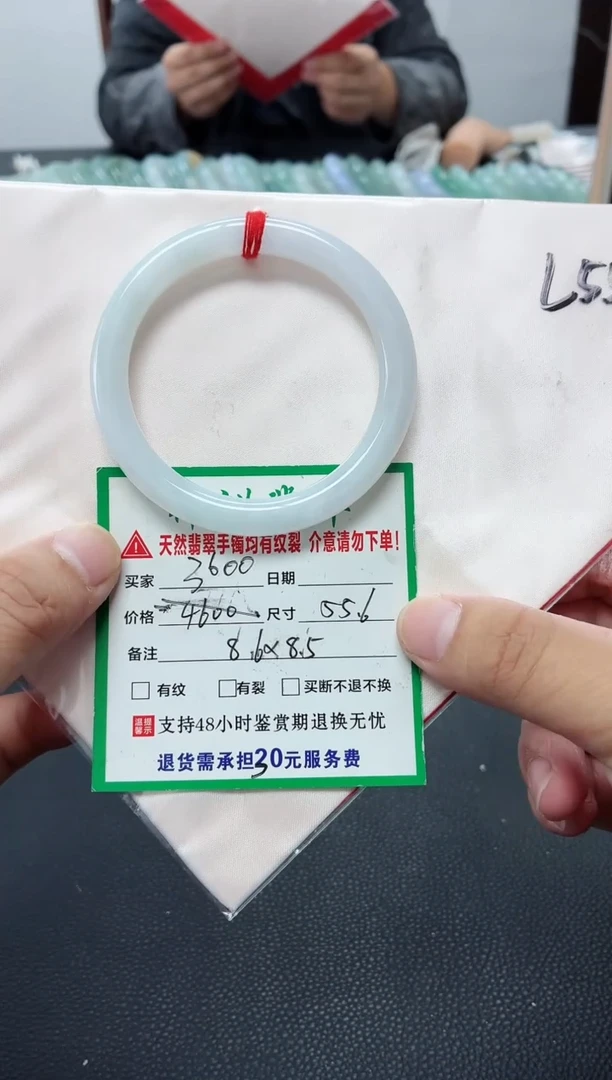 L55
天然翡翠手镯均有纹裂 介意请勿下单!
买家 3600 日期
价格 4600 尺寸 55.6
备注 8.6×8.5
有纹 有裂 买断不退不换
温馨提示 支持48小时鉴赏期退换无忧
退货需承担30元服务费